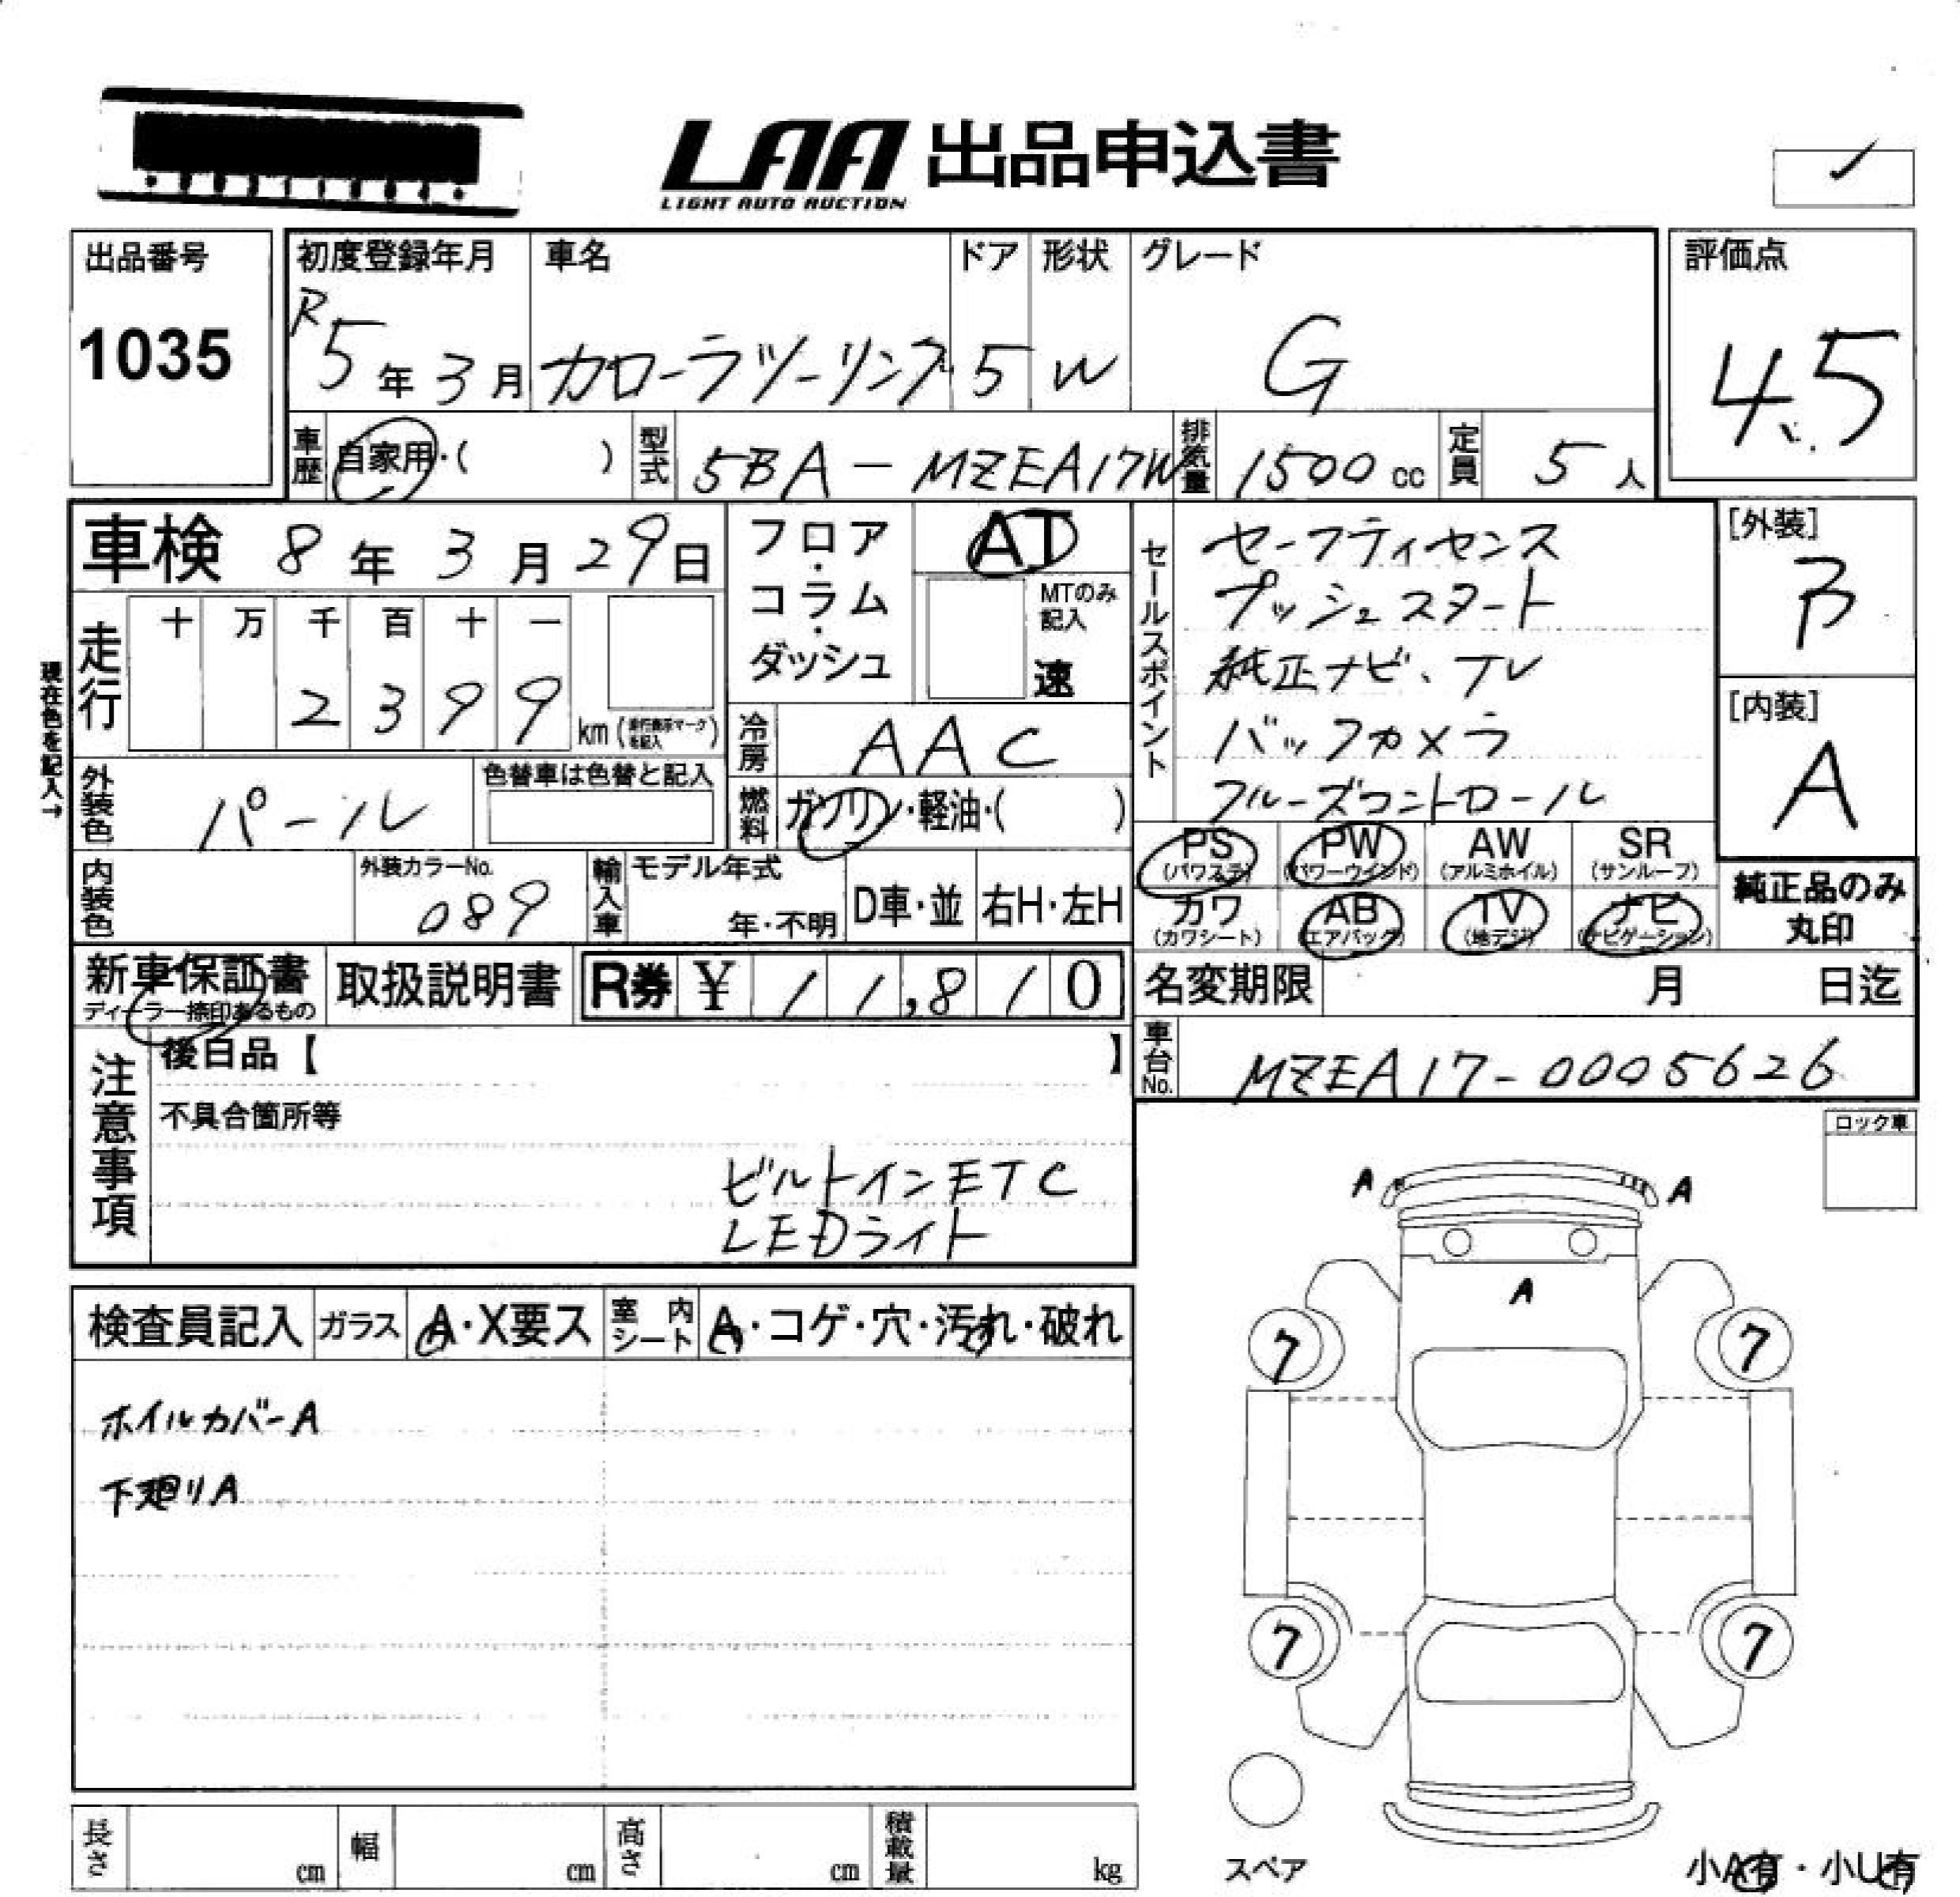 LAA 出品申込書
LIGHT AUTO AUCTION
出品番号
1035
初度登録年月
R5年3月
車名
カローラツーリング
ドア
5
形状
W
グレード
G
評価点
4.5
車歴
自家用・( )
型式
5BA-MZEA17W
排気量
1500cc
定員
5人
車検 8年3月29日
フロア・コラム・ダッシュ
AT
MTのみ記入
速
セールスポイント
セーフティセンス
プッシュスタート
純正ナビ、TV
バックカメラ
クルーズコントロール
[外装]
B
[内装]
A
現在色を記入→
走行
十 万 千 百 十 一
2 3 9 9
km(走行表示マークを記入)
冷房
AAC
外装色
パール
色替車は色替と記入
燃料
ガソリン・軽油・( )
PS AW PW SR
(パワステ) (パワーウインド) (アルミホイル) (サンルーフ)
カワ AB TV ナビ
(カワシート) (エアバッグ) (地デジ) (ナビゲーション)
純正品のみ
丸印
内装色
外装カラーNo.
089
輸入車
モデル年式
年・不明
D車・並
右H・左H
新車保証書
ディーラー捺印あるもの
取扱説明書
R券 ¥ 11,810
名変期限 月 日迄
車台No.
MZEA17-0005626
注意事項
後日品【 】
不具合箇所等
ビルトインETC
LEDライト
ロック車
検査員記入
ガラス
A・X要ス
室内シート
A・コゲ・穴・汚れ・破れ
ホイルカバーA
下廻りA
A A
A
7 7
7 7
スペア
小A有・小U有
長さ cm
幅 cm
高さ cm
積載量 kg